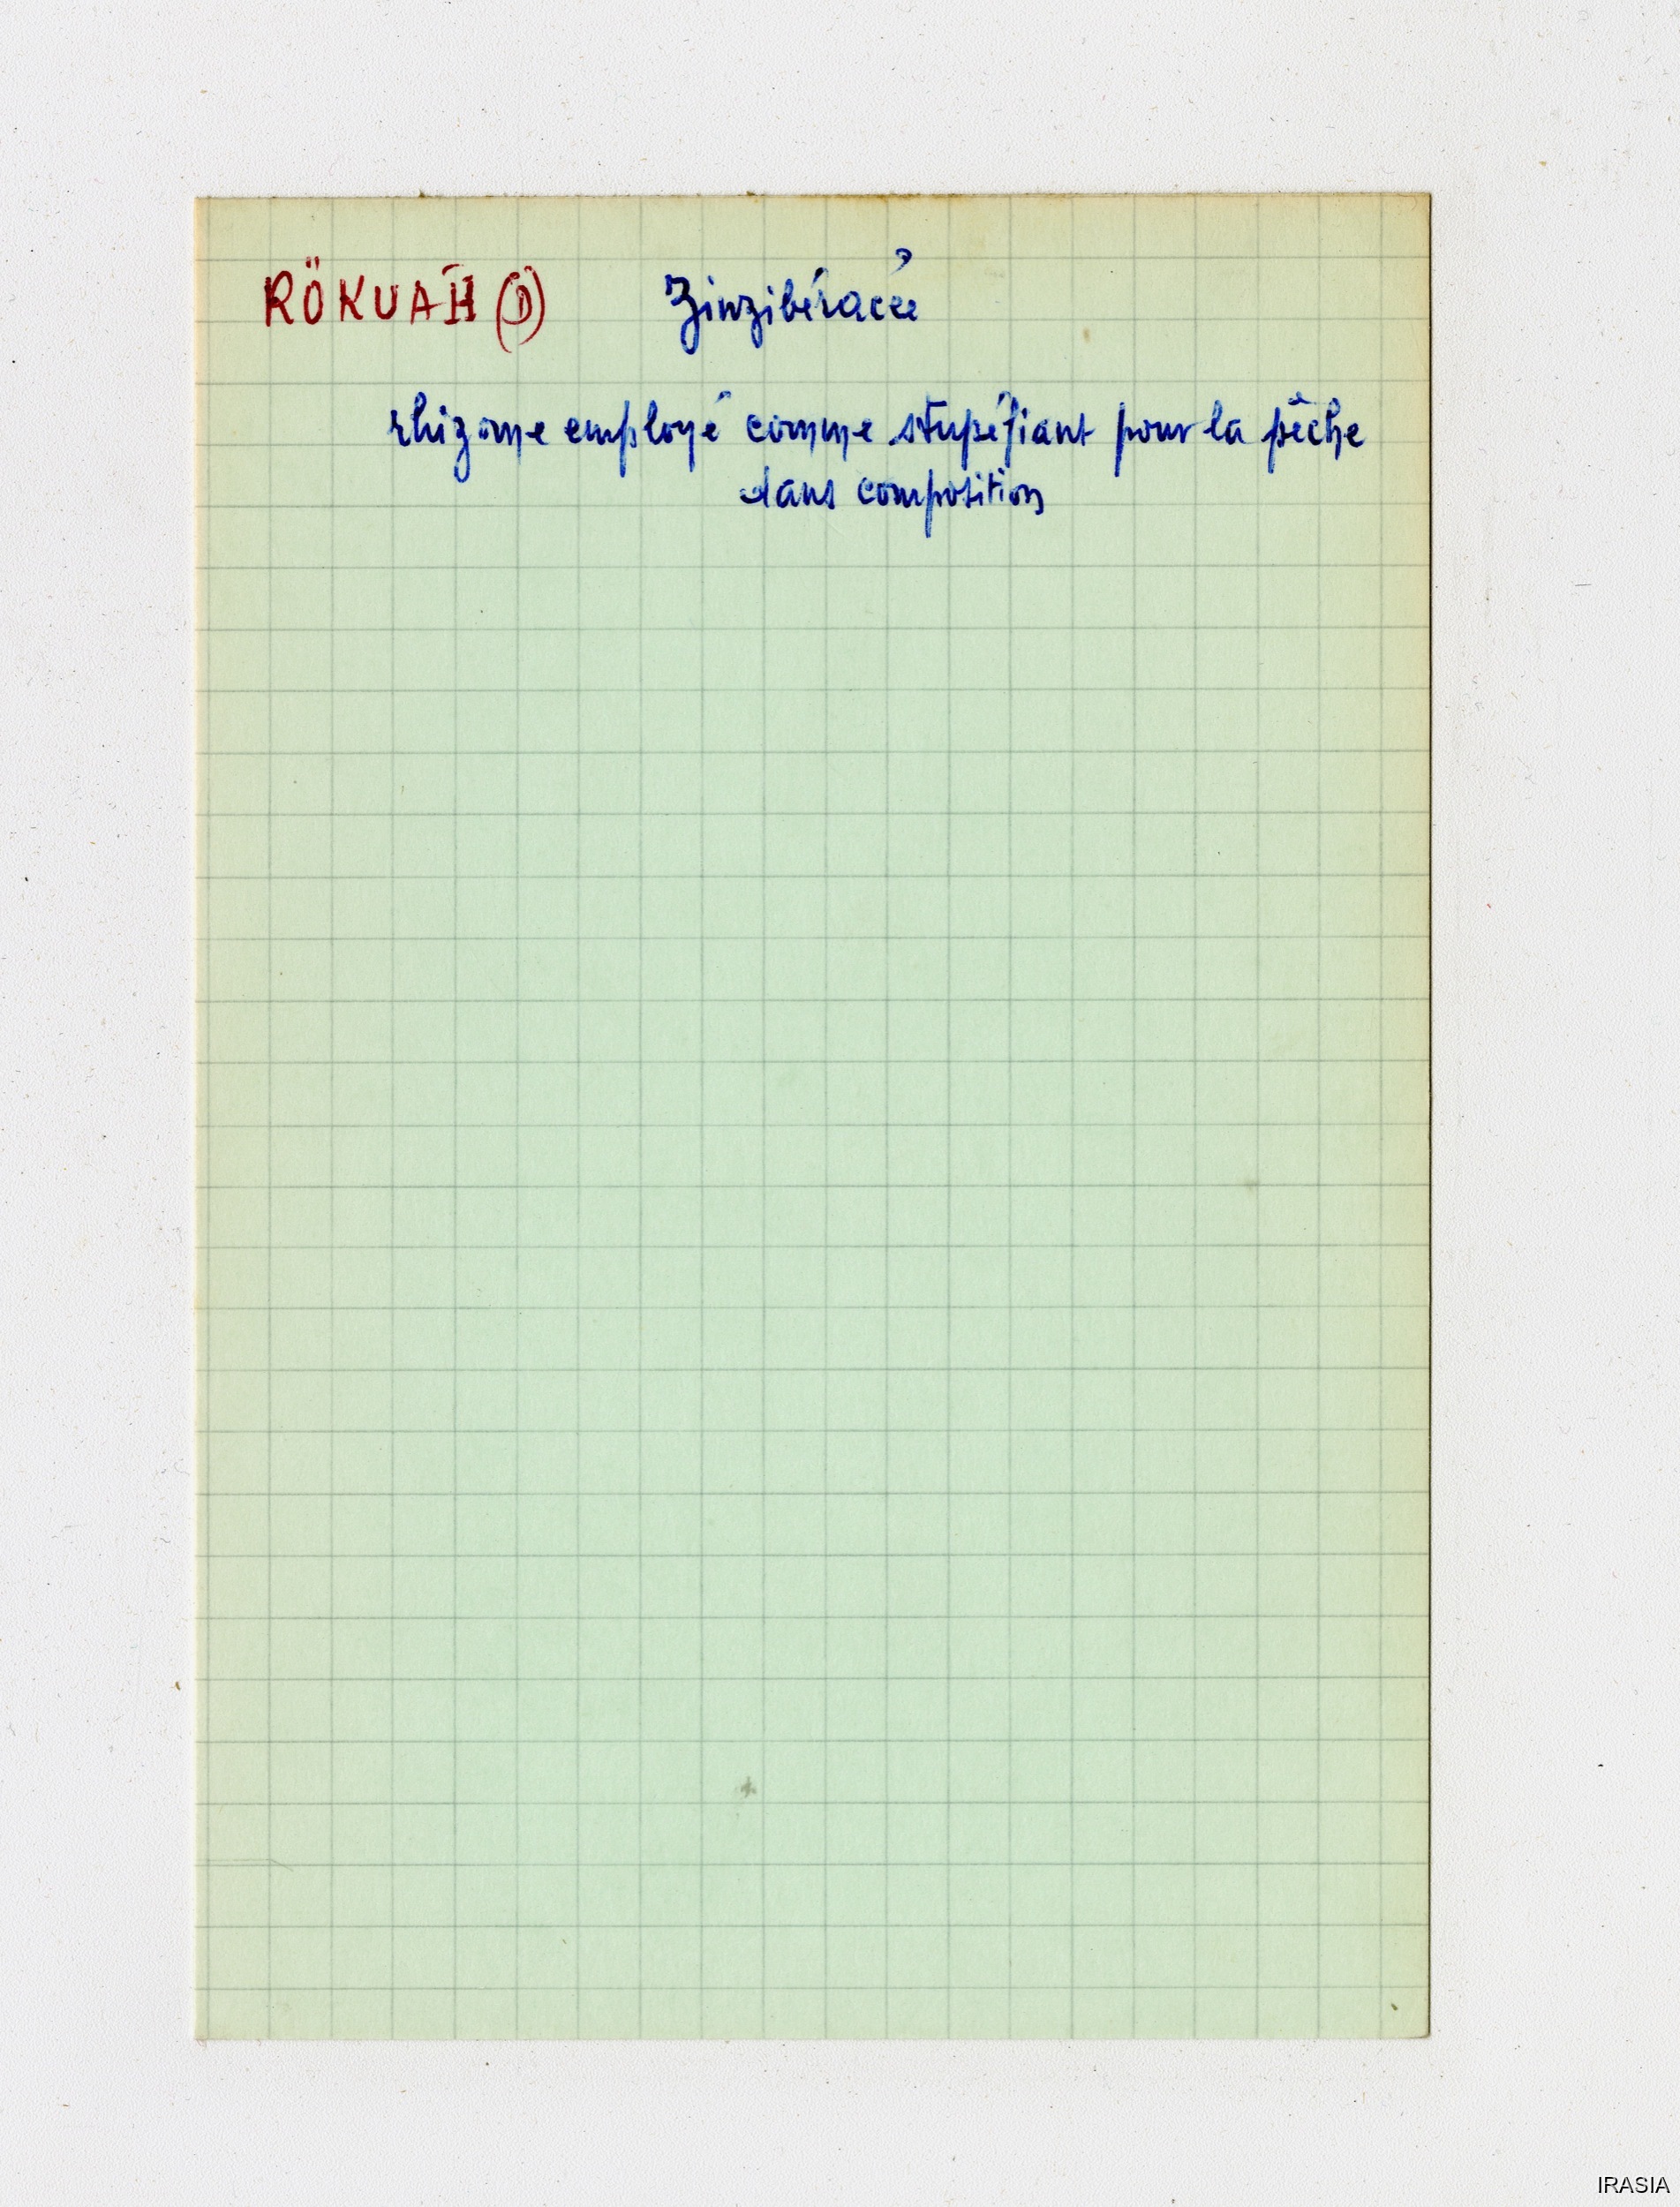 RÖKUAH (D) Zinzibéracée
rhizome employé comme stupéfiant pour la pêche
dans composition
IRASIA